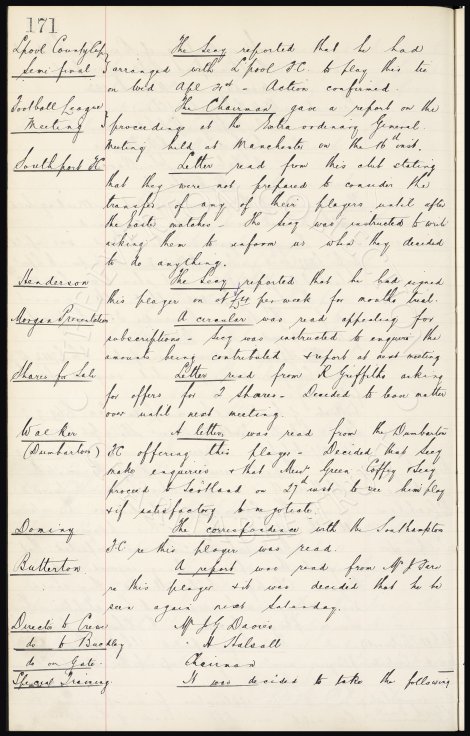 171
Lpool County Cup The Secy reported that he had
Semi-final arranged with L'pool F.C. to play this tie
on Wed Apl 21st - Action confirmed.
Football League The Chairman gave a report on the
Meeting proceedings at the Extra ordinary General
Meeting held at Manchester on the 16th inst.
Southport FC Letter read from this club stating
that they were not prepared to consider the
transfer of any of their players until after
the Easter matches - The Secy was instructed to write
asking them to inform us when they decided
to do anything.
Henderson The Secy reported that he had signed
this player on at per week for months trial.
Morgan Presentation A circular was read appealing for
subscriptions - Secy was instructed to enquire the
amount being contributed & report at next meeting
Shares for Sale Letter read from R Griffiths asking
for offers for 2 shares - Decided to leave matter
over until next meeting.
Walker A letter was read from the Dumbarton
(Dumbarton) FC offering this player - Decided that Secy
make enquiries & that Messrs Green Coffey & Secy
proceed to Scotland on 27th inst to see him play
& if satisfactory to negotiate.
Dominy The correspondence with the Southampton
F.C. re this player was read.
Butterton A report was read from Mr J
re this player & it was decided that he be
seen again next Saturday.
Directs to Crewe Mr J G Davies
do to Buckley " H Halsall
do on Gate. Chairman
Special Training It was decided to take the following